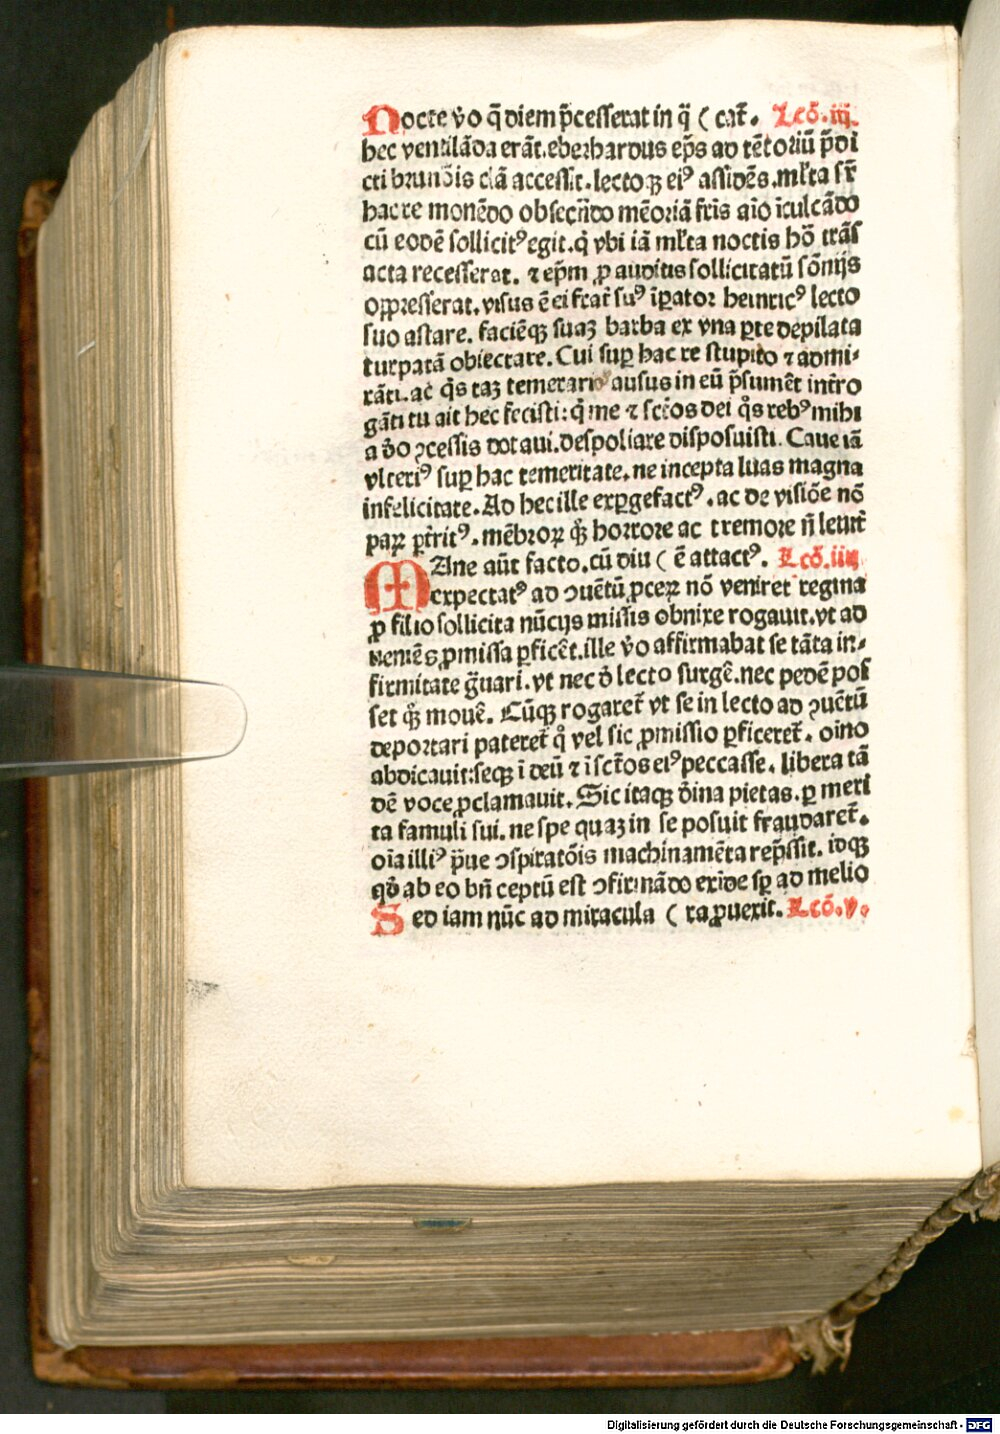 Nocte v̄o q̄ diem p̄cesserat in q̄ ( cat̄. Lcō. iij.
hec ventilāda erāt. eberhardus ep̄s ad tētoriū p̄di
cti brunōis clā accessit. lectoqꝫ eiꝰ assidēs. ml̄ta sr̄
hac re monēdo obsecrādo mēoriā fr̄is aīo īculcādo
cū eodē sollicitꝰ egit. qͥ vbi iā ml̄ta noctis hō trās
acta recesserat. ⁊ ep̄m ꝓ auditis sollicitatū sōnijs
oppresserat. visus ē ei frat̄ suꝰ īꝑator heinricꝰ lecto
suo astare. faciēqꝫ suaꝫ barba ex vna ꝑte depilata
turpatā obiectare. Cui suꝑ hac re stupido ⁊ admi⸗
rāti. ac qͥs taꝫ temerariꝰ ausus in eū p̄sumēt intͥro
gāti tu ait hec fecisti: qͥ me ⁊ sct̄os dei qͦs rebꝰ mihi
a dō ꝯcessis dotaui. despoliare disposuisti. Caue iā
vlteriꝰ suꝑ hac temeritate. ne incepta luas magna
infelicitate. Ad hec ille exꝑgefactꝰ. ac de visiōe nō
paꝝ ꝑtͥritꝰ. mēbroꝝ qͣꝫ horrore ac tremore n̄ leuit̄
MAne aūt facto. cū diu ( ē attactꝰ. Lcō. iiij
expectatꝰ ad ꝯuētū ꝓceꝝ nō veniret regina
ꝓ filio sollicita nūcijs missis obnixe rogauit. vt ad
veniēs ꝓmissa ꝑficēt. ille v̄o affirmabat se tāta in⸗
firmitate gͣuari. vt nec d̄ lecto surgē. nec pedē pos
set qͣꝫ mouē. Cūqꝫ rogaret̄ vt se in lecto ad ꝯuētū
deportari pateret̄ qͦ vel sic ꝓmissio ꝑficeret̄. oīno
abdicauit: seqꝫ ī deū ⁊ ī sct̄os eiꝰ peccasse. libera tā
dē voce ꝓclamauit. Sic itaqꝫ dīna pietas. ꝑ meri
ta famuli sui. ne spe quaꝫ in se posuit fraudaret̄.
oīa illiꝰ p̄ue ꝯspiratōis machinamēta rep̄ssit. idqꝫ
qd̄ ab eo bn̄ ceptū est ꝯfirmādo exīde sꝑ ad melio
Sed iam nūc ad miracula ( ra ꝓuexit. Lcō. v.
Digitalisierung gefördert durch die Deutsche Forschungsgemeinschaft - DFG